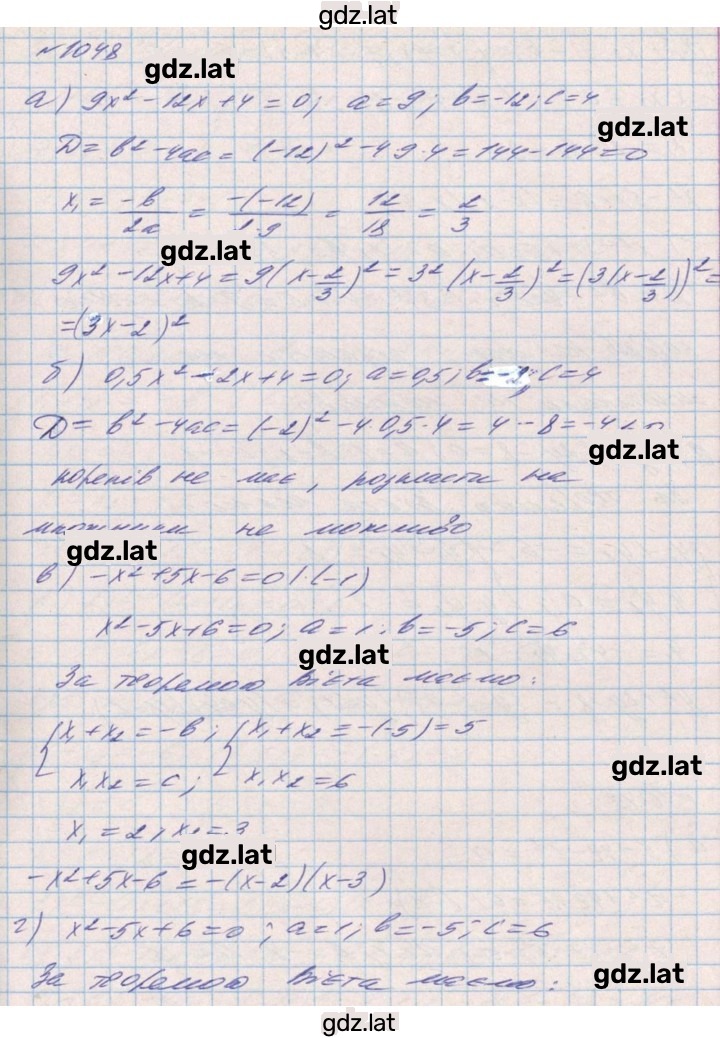 gdz.lat
№1048
gdz.lat
а) 9x² - 12x + 4 = 0; a = 9; b = -12; c = 4
gdz.lat
D = b² - 4ac = (-12)² - 4·9·4 = 144 - 144 = 0
x₁ = -b/2a = -(-12)/2·9 = 12/18 = 2/3
gdz.lat
9x² - 12x + 4 = 9(x - 2/3)² = 3²(x - 2/3)² = (3(x - 2/3))² =
= (3x - 2)²
б) 0,5x² - 2x + 4 = 0; a = 0,5; b = -2; c = 4
D = b² - 4ac = (-2)² - 4·0,5·4 = 4 - 8 = -4 <
gdz.lat
коренів не має, розкласти на
не можливо
gdz.lat
в) -x² + 5x - 6 = 0 |·(-1)
x² - 5x + 6 = 0; a = 1; b = -5; c = 6
gdz.lat
За теоремою Вієта маємо:
{x₁ + x₂ = -b; {x₁ + x₂ = -(-5) = 5
x₁x₂ = c; x₁x₂ = 6
gdz.lat
x₁ = 2; x₂ = 3
gdz.lat
-x² + 5x - 6 = -(x - 2)(x - 3)
г) x² - 5x + 6 = 0; a = 1; b = -5; c = 6
За теоремою Вієта маємо:
gdz.lat
gdz.lat